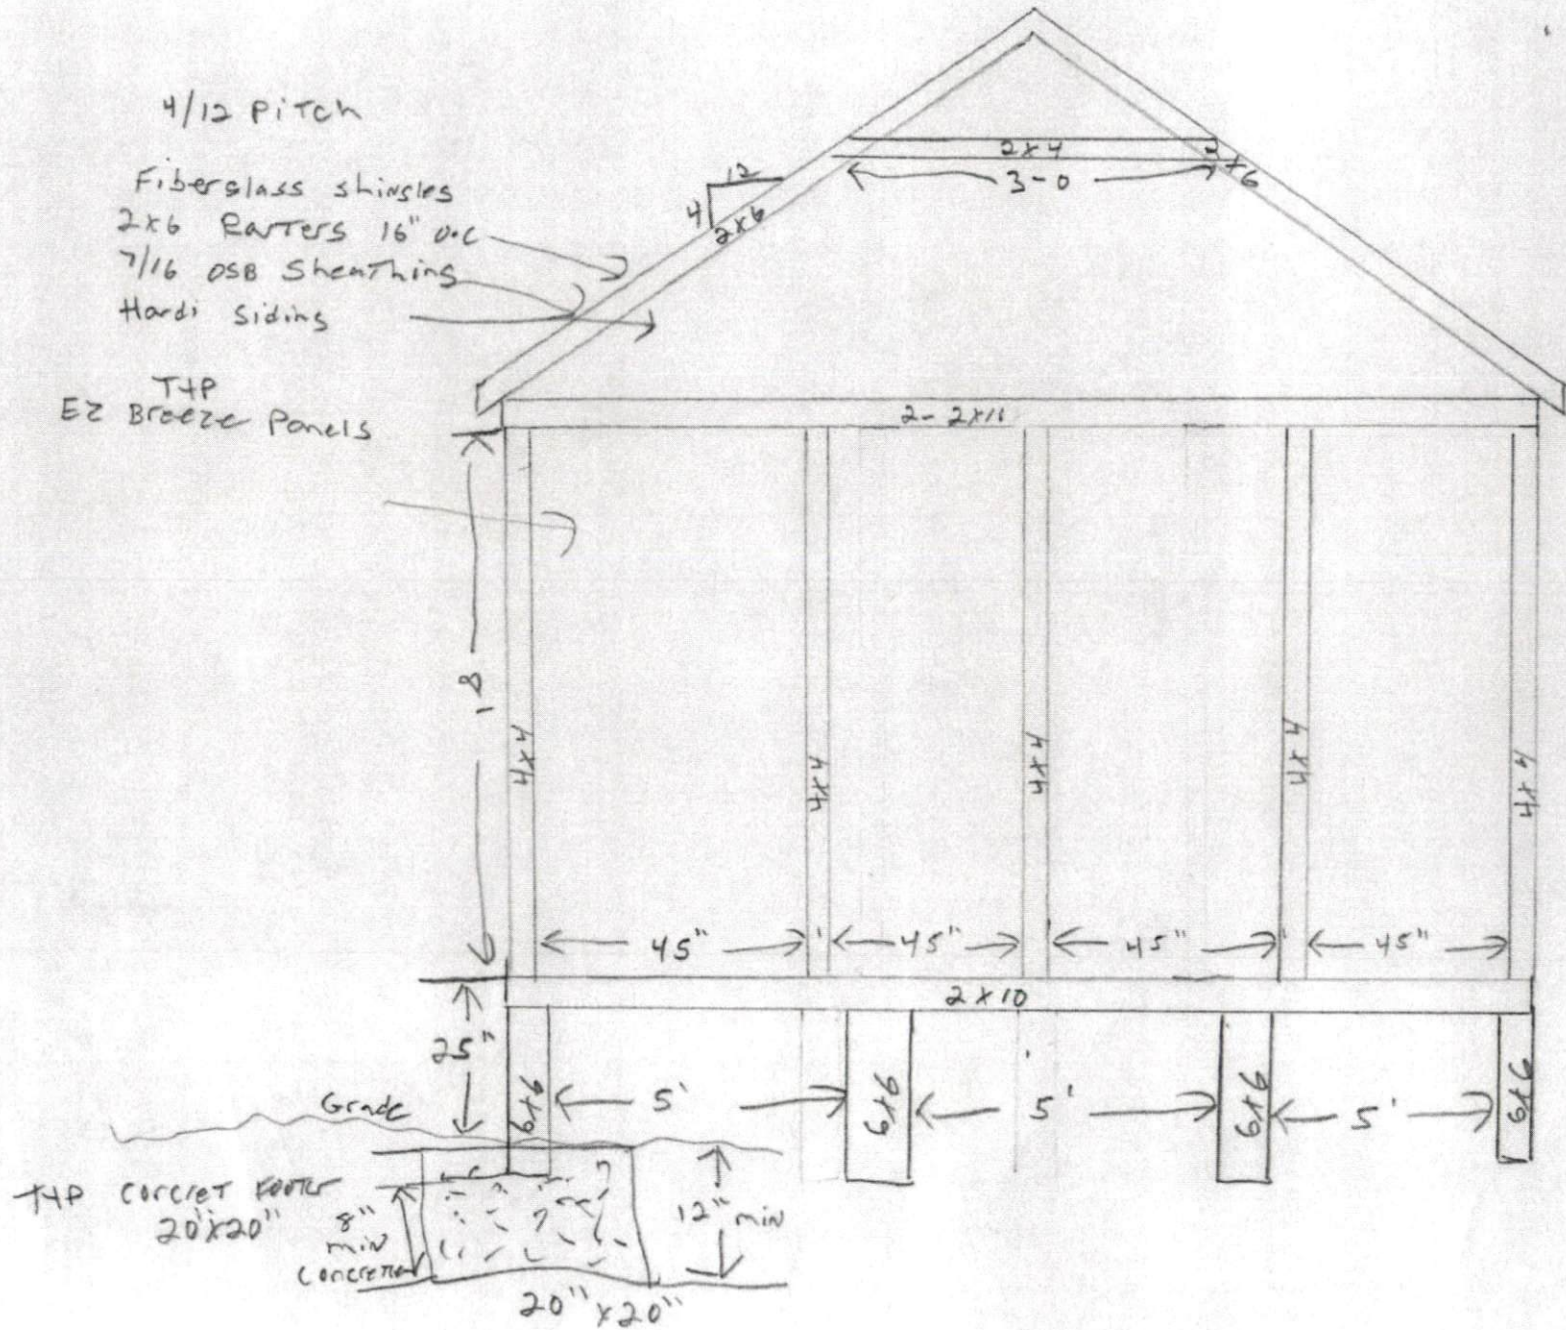 4/12 PiTch
Fiberglass shingles
2x6 RafTers 16" o.c
7/16 OSB SheaThing
Hardi Siding
TYP
EZ Breeze Panels
12
4
2x6
2x4
2x6
3-0
2-2x11
8'
4x4
4x4
4x4
4x4
4x4
45"
45"
45"
45"
2x10
25"
Grade
6x6
5'
6x6
5'
6x6
5'
6x6
TYP Concret Footer
20"x20"
8"
min
Concrete
12" min
20"x20"